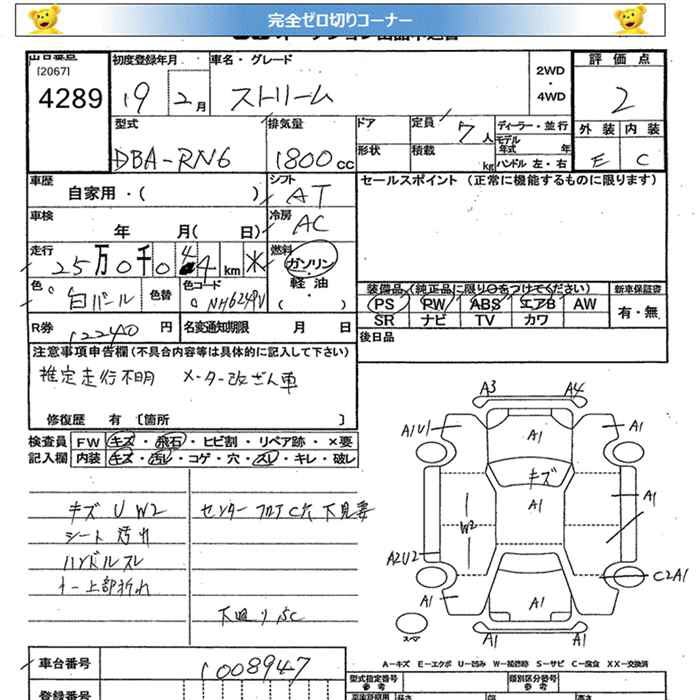 完全ゼロ切りコーナー
[2067]
4289
初度登録年月
19 2月
車名・グレード
ストリーム
2WD
・
4WD
評価点
2
外装 内装
E C
型式
DBA-RN6
排気量
1800cc
ドア
形状
定員
7人
積載
kg
ディーラー・並行
モデル年式 年
ハンドル 左・右
車歴
自家用・( )
シフト
AT
セールスポイント (正常に機能するものに限ります)
車検
年 月( 日)
冷房
AC
走行
25万0千044km
燃料
ガソリン
・
軽油
( )
色
白パール
色替
色コード
NH624PV
装備品 (純正品に限り○をつけてください)
PS PW ABS エアB AW
SR ナビ TV カワ
新車保証書
有・無
R券
12240円
名変通知期限 月 日
後日品
注意事項申告欄(不具合内容等は具体的に記入して下さい)
推定走行不明 メーター改ざん車
修復歴 有〔箇所 〕
検査員
記入欄
FW キズ・飛石・ヒビ割・リペア跡・×要
内装 キズ・汚レ・コゲ・穴・スレ・キレ・破レ
キズ U W2
シート 汚れ
ハンドルスレ
センター フロア C穴 下見妻
A3 A4
A1U1
A1
A1
キズ
A1
A1
W2
A2U2
C2A1
A1
A1
A1
A1 A1
スペア
A-キズ E-エクボ U-凹み W-補修跡 S-サビ C-腐食 XX-交換済
車台番号
1008947
登録番号
型式指定番号
参考
類別区分番号
参考